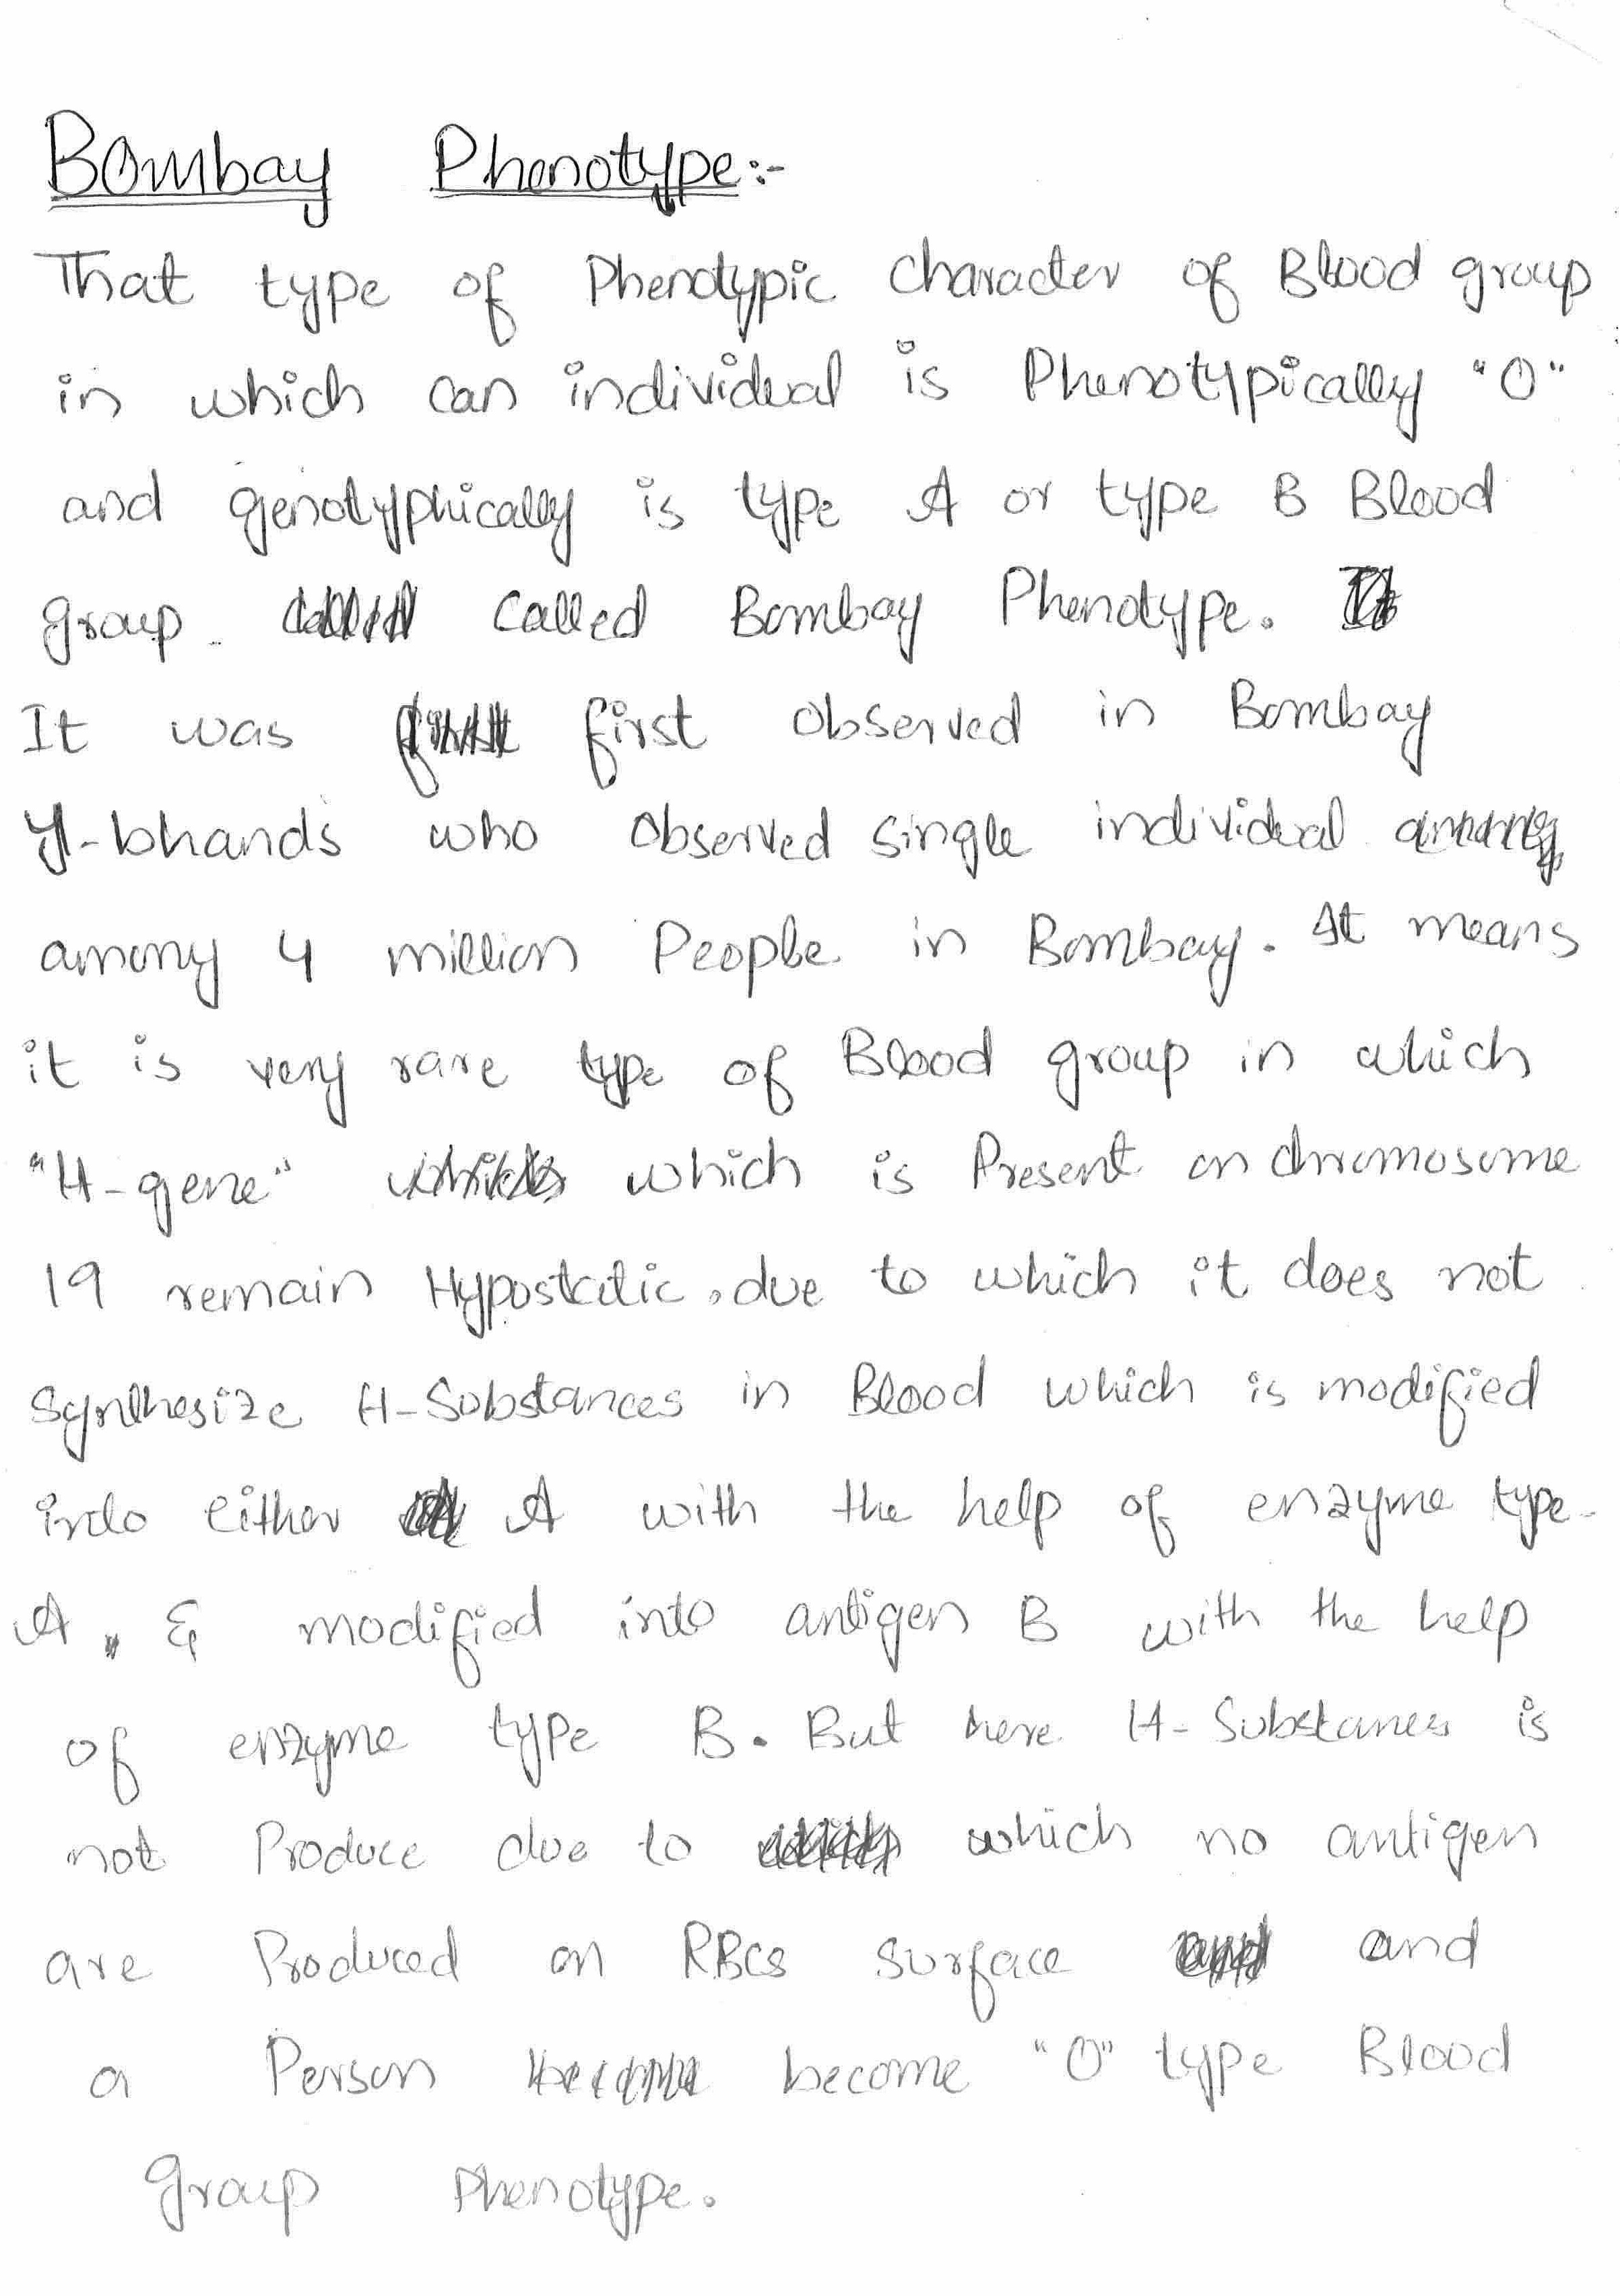 Bombay Phenotype:-
That type of Phenotypic character of Blood group
in which can individual is Phenotypically "O"
and genotyphically is type A or type B Blood
group. called Bombay Phenotype.
It was first observed in Bombay
Y-bhands who observed single individual
among 4 million People in Bombay. It means
it is very rare type of Blood group in which
"H-gene" which is Present on chromosome
19 remain Hypostatic. due to which it does not
Synthesize H-Substances in Blood which is modified
into either A with the help of enzyme type-
A, & modified into antigen B with the help
of enzyme type B. But here H-Substances is
not Produce due to which no antigen
are Produced on RBCs surface and
a Person become "O" type Blood
group Phenotype.